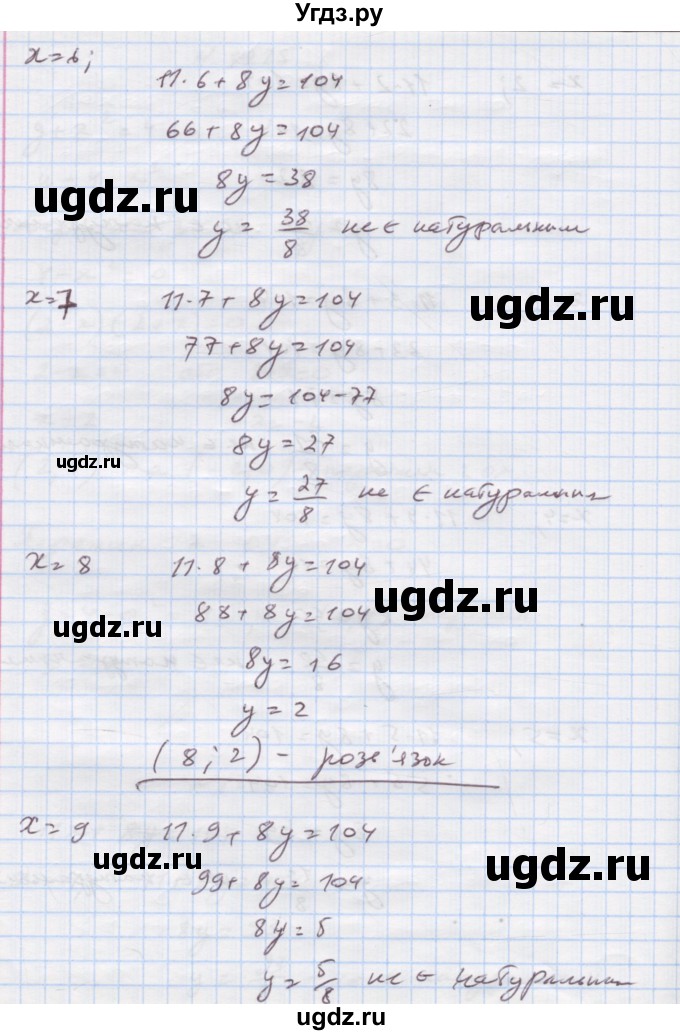 Угдз.ру
x=6;
11·6+8y=104
66+8y=104
8y=38
ugdz.ru
y=38/8 не є натуральним
x=7
11·7+8y=104
ugdz.ru
77+8y=104
8y=104-77
8y=27
ugdz.ru
y=27/8 не є натуральним
x=8
11·8+8y=104
ugdz.ru
88+8y=104
ugdz.ru
8y=16
y=2
(8;2) - розв'язок
x=9
11·9+8y=104
ugdz.ru
ugdz.ru
99+8y=104
8y=5
y=5/8 не є натуральним
ugdz.ru
ugdz.ru